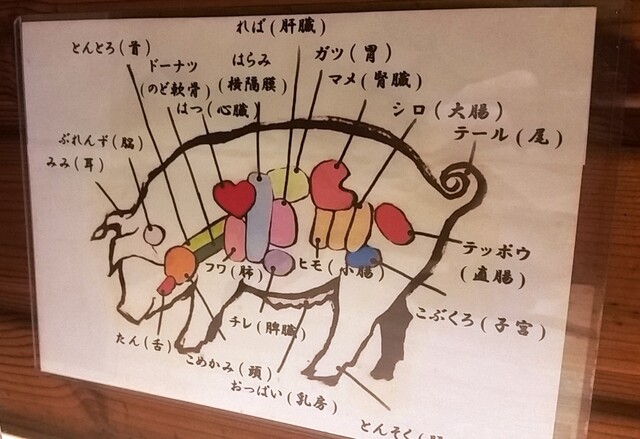 れば(肝臓)
とんとろ(首)
ドーナツ
(のど軟骨)
はらみ
(横隔膜)
ガツ(胃)
マメ(腎臓)
はつ(心臓)
シロ(大腸)
テール(尾)
ぶれんず(脳)
みみ(耳)
フワ(肺)
ヒモ(小腸)
テッポウ
(直腸)
こぶくろ(子宮)
チレ(脾臓)
たん(舌)
こめかみ(頭)
おっぱい(乳房)
とんそく(